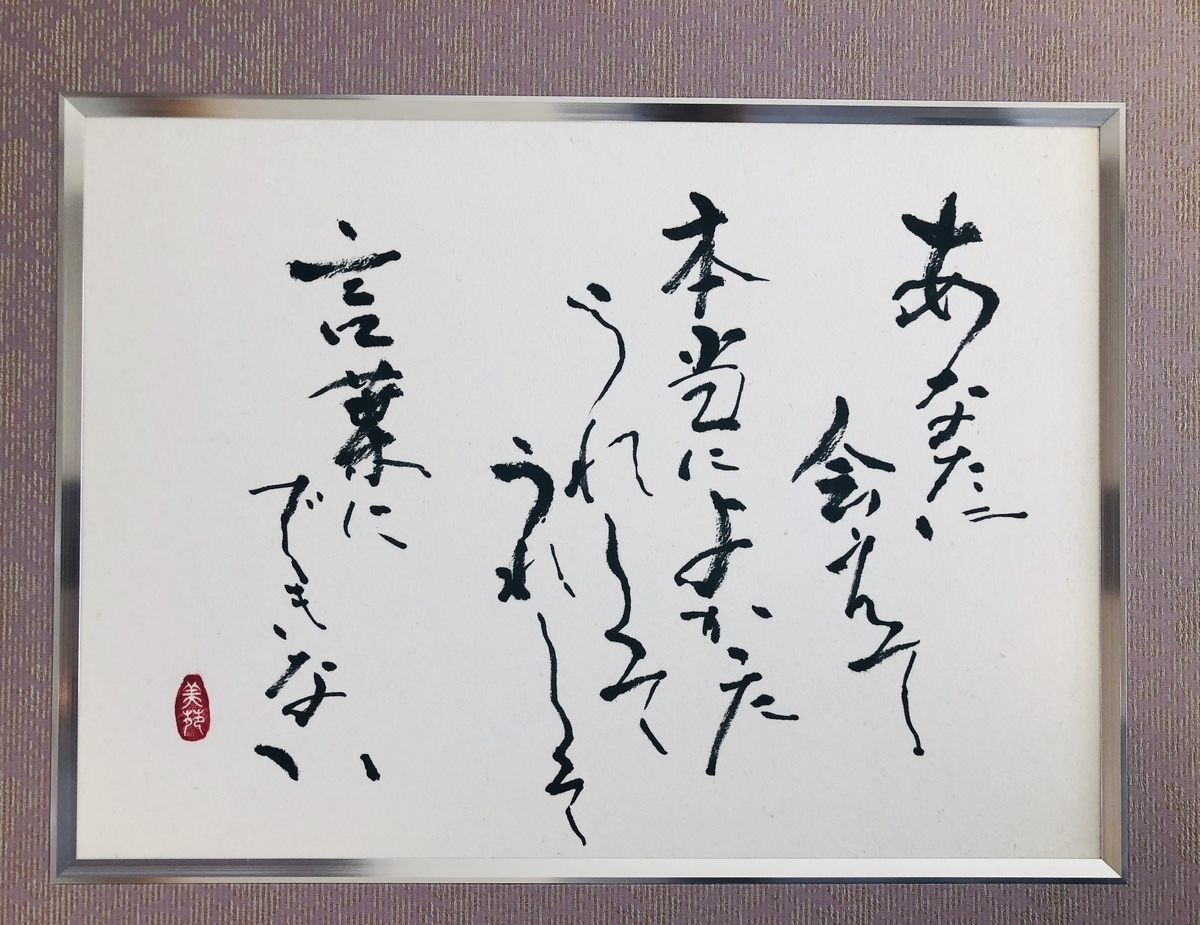 あなたに
会えて
本当によかった
うれしくて
うれしくて
言葉に
できない
美苑